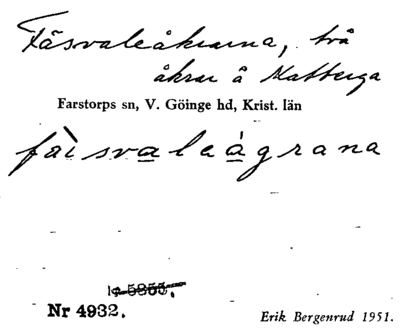 Fäsvaleåkrarna, två
åkrar å Matberga
Farstorps sn, V. Göinge hd, Krist. län
fàisvaleågrana
Nr 4932.
Erik Bergenrud 1951.